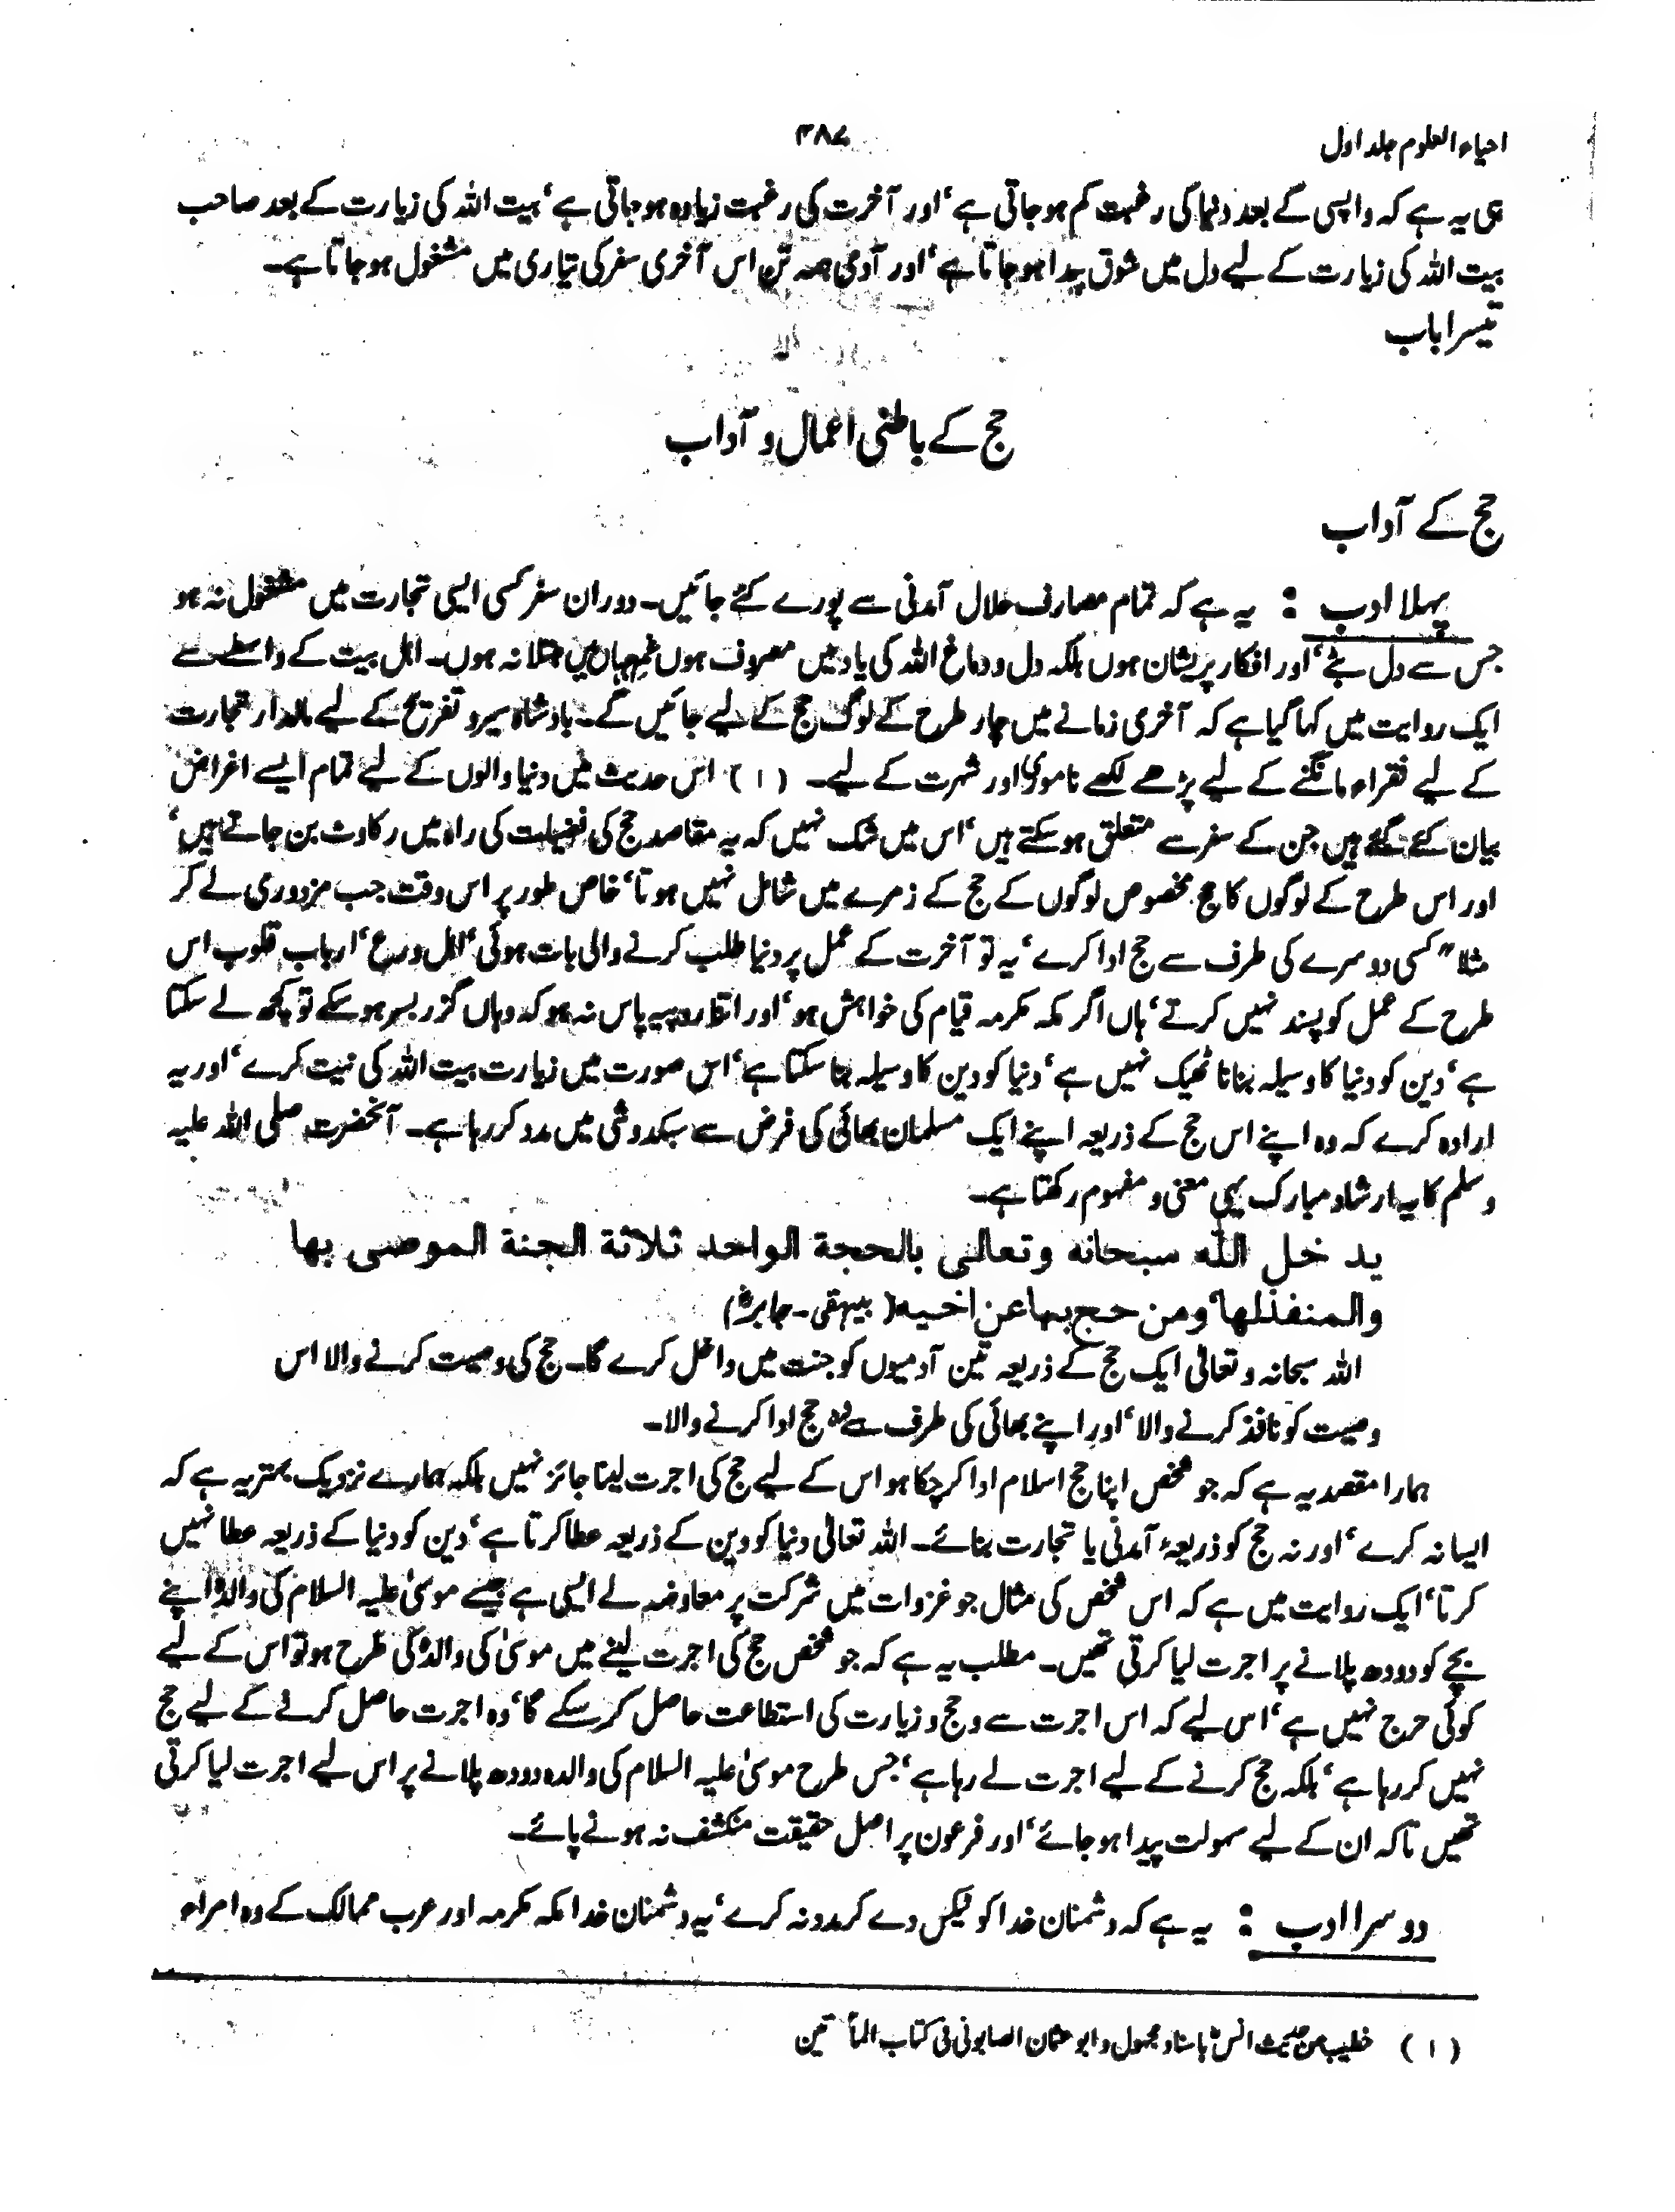 احیاء العلوم جلد اول
۳۸۷
ہی یہ ہے کہ واپسی کے بعد دنیا کی رغبت کم ہو جاتی ہے‘ اور آخرت کی رغبت زیادہ ہو جاتی ہے‘ بیت اللہ کی زیارت کے بعد صاحب
بیت اللہ کی زیارت کے لیے دل میں شوق پیدا ہو جاتا ہے‘ اور آدمی ہمہ تن اس آخری سفر کی تیاری میں مشغول ہو جاتا ہے۔
تیسرا باب
حج کے باطنی اعمال و آداب
حج کے آداب
پہلا ادب : یہ ہے کہ تمام مصارف حلال آمدنی سے پورے کئے جائیں۔ دوران سفر کسی ایسی تجارت میں مشغول نہ ہو
جس سے دل بٹے‘ اور افکار پریشان ہوں بلکہ دل و دماغ اللہ کی یاد میں مصروف ہوں غم جہاں میں مبتلا نہ ہوں۔ اہل بیت کے واسطے سے
ایک روایت میں کہا گیا ہے کہ آخری زمانے میں چار طرح کے لوگ حج کے لیے جائیں گے۔ بادشاہ سیر و تفریح کے لیے مالدار تجارت
کے لیے فقراء مانگنے کے لیے پڑھے لکھے ناموری اور شہرت کے لیے۔ (۱) اس حدیث میں دنیا والوں کے لیے تمام ایسے اغراض
بیان کئے گئے ہیں جن کے سفر سے متعلق ہو سکتے ہیں‘ اس میں شک نہیں کہ یہ مقاصد حج کی فضیلت کی راہ میں رکاوٹ بن جاتے ہیں‘
اور اس طرح کے لوگوں کا حج مخصوص لوگوں کے حج کے زمرے میں شامل نہیں ہوتا‘ خاص طور پر اس وقت جب مزدوری لے کر
مثلا" کسی دوسرے کی طرف سے حج ادا کرے‘ یہ تو آخرت کے عمل پر دنیا طلب کرنے والی بات ہوئی‘ اہل ورع‘ ارباب قلوب اس
طرح کے عمل کو پسند نہیں کرتے‘ ہاں اگر مکہ مکرمہ قیام کی خواہش ہو‘ اور اتنا روپیہ پاس نہ ہو کہ وہاں گزر بسر ہو سکے تو کچھ لے سکتا
ہے‘ دین کو دنیا کا وسیلہ بنانا ٹھیک نہیں ہے‘ دنیا کو دین کا وسیلہ بنا سکتا ہے‘ اس صورت میں زیارت بیت اللہ کی نیت کرے‘ اور یہ
ارادہ کرے کہ وہ اپنے اس حج کے ذریعہ اپنے ایک مسلمان بھائی کی فرض سے سبکدوشی میں مدد کر رہا ہے۔ آنحضرت صلی اللہ علیہ
وسلم کا یہ ارشاد مبارک یہی معنی و مفہوم رکھتا ہے۔
يد خل الله سبحانه وتعالى بالحجة الواحد ثلاثة الجنة الموصى بها
والمنفذلها ومن حج بها عن اخيه (بیہقی۔ جابرؓ)
اللہ سبحانہ و تعالٰی ایک حج کے ذریعہ تین آدمیوں کو جنت میں داخل کرے گا۔ حج کی وصیت کرنے والا اس
وصیت کو نافذ کرنے والا‘ اور اپنے بھائی کی طرف سے وہ حج ادا کرنے والا۔
ہمارا مقصد یہ ہے کہ جو شخص اپنا حج اسلام ادا کر چکا ہو اس کے لیے حج کی اجرت لینا جائز نہیں بلکہ ہمارے نزدیک بہتر یہ ہے کہ
ایسا نہ کرے‘ اور نہ حج کو ذریعۂ آمدنی یا تجارت بنائے۔ اللہ تعالٰی دنیا کو دین کے ذریعہ عطا کرتا ہے‘ دین کو دنیا کے ذریعہ عطا نہیں
کرتا‘ ایک روایت میں ہے کہ اس شخص کی مثال جو غزوات میں شرکت پر معاوضہ لے ایسی ہے جیسے موسیٰ علیہ السلام کی والدہ اپنے
بچے کو دودھ پلانے پر اجرت لیا کرتی تھیں۔ مطلب یہ ہے کہ جو شخص حج کی اجرت لینے میں موسیٰ کی والدہ کی طرح ہو تو اس کے لیے
کوئی حرج نہیں ہے‘ اس لیے کہ اس اجرت سے وہ حج و زیارت کی استطاعت حاصل کر سکے گا‘ وہ اجرت حاصل کرنے کے لیے حج
نہیں کر رہا ہے‘ بلکہ حج کرنے کے لیے اجرت لے رہا ہے‘ جس طرح موسیٰ علیہ السلام کی والدہ دودھ پلانے پر اس لیے اجرت لیا کرتی
تھیں تاکہ ان کے لیے سہولت پیدا ہو جائے‘ اور فرعون پر اصل حقیقت منکشف نہ ہونے پائے۔
دوسرا ادب : یہ ہے کہ دشمنان خدا کو ٹیکس دے کر مدد نہ کرے‘ یہ دشمنان خدا مکہ مکرمہ اور عرب ممالک کے وہ امراء
(۱) خطیب من حدیث انسؓ باسناد مجہول و ابو عثمان الصابونی فی کتاب المأتین